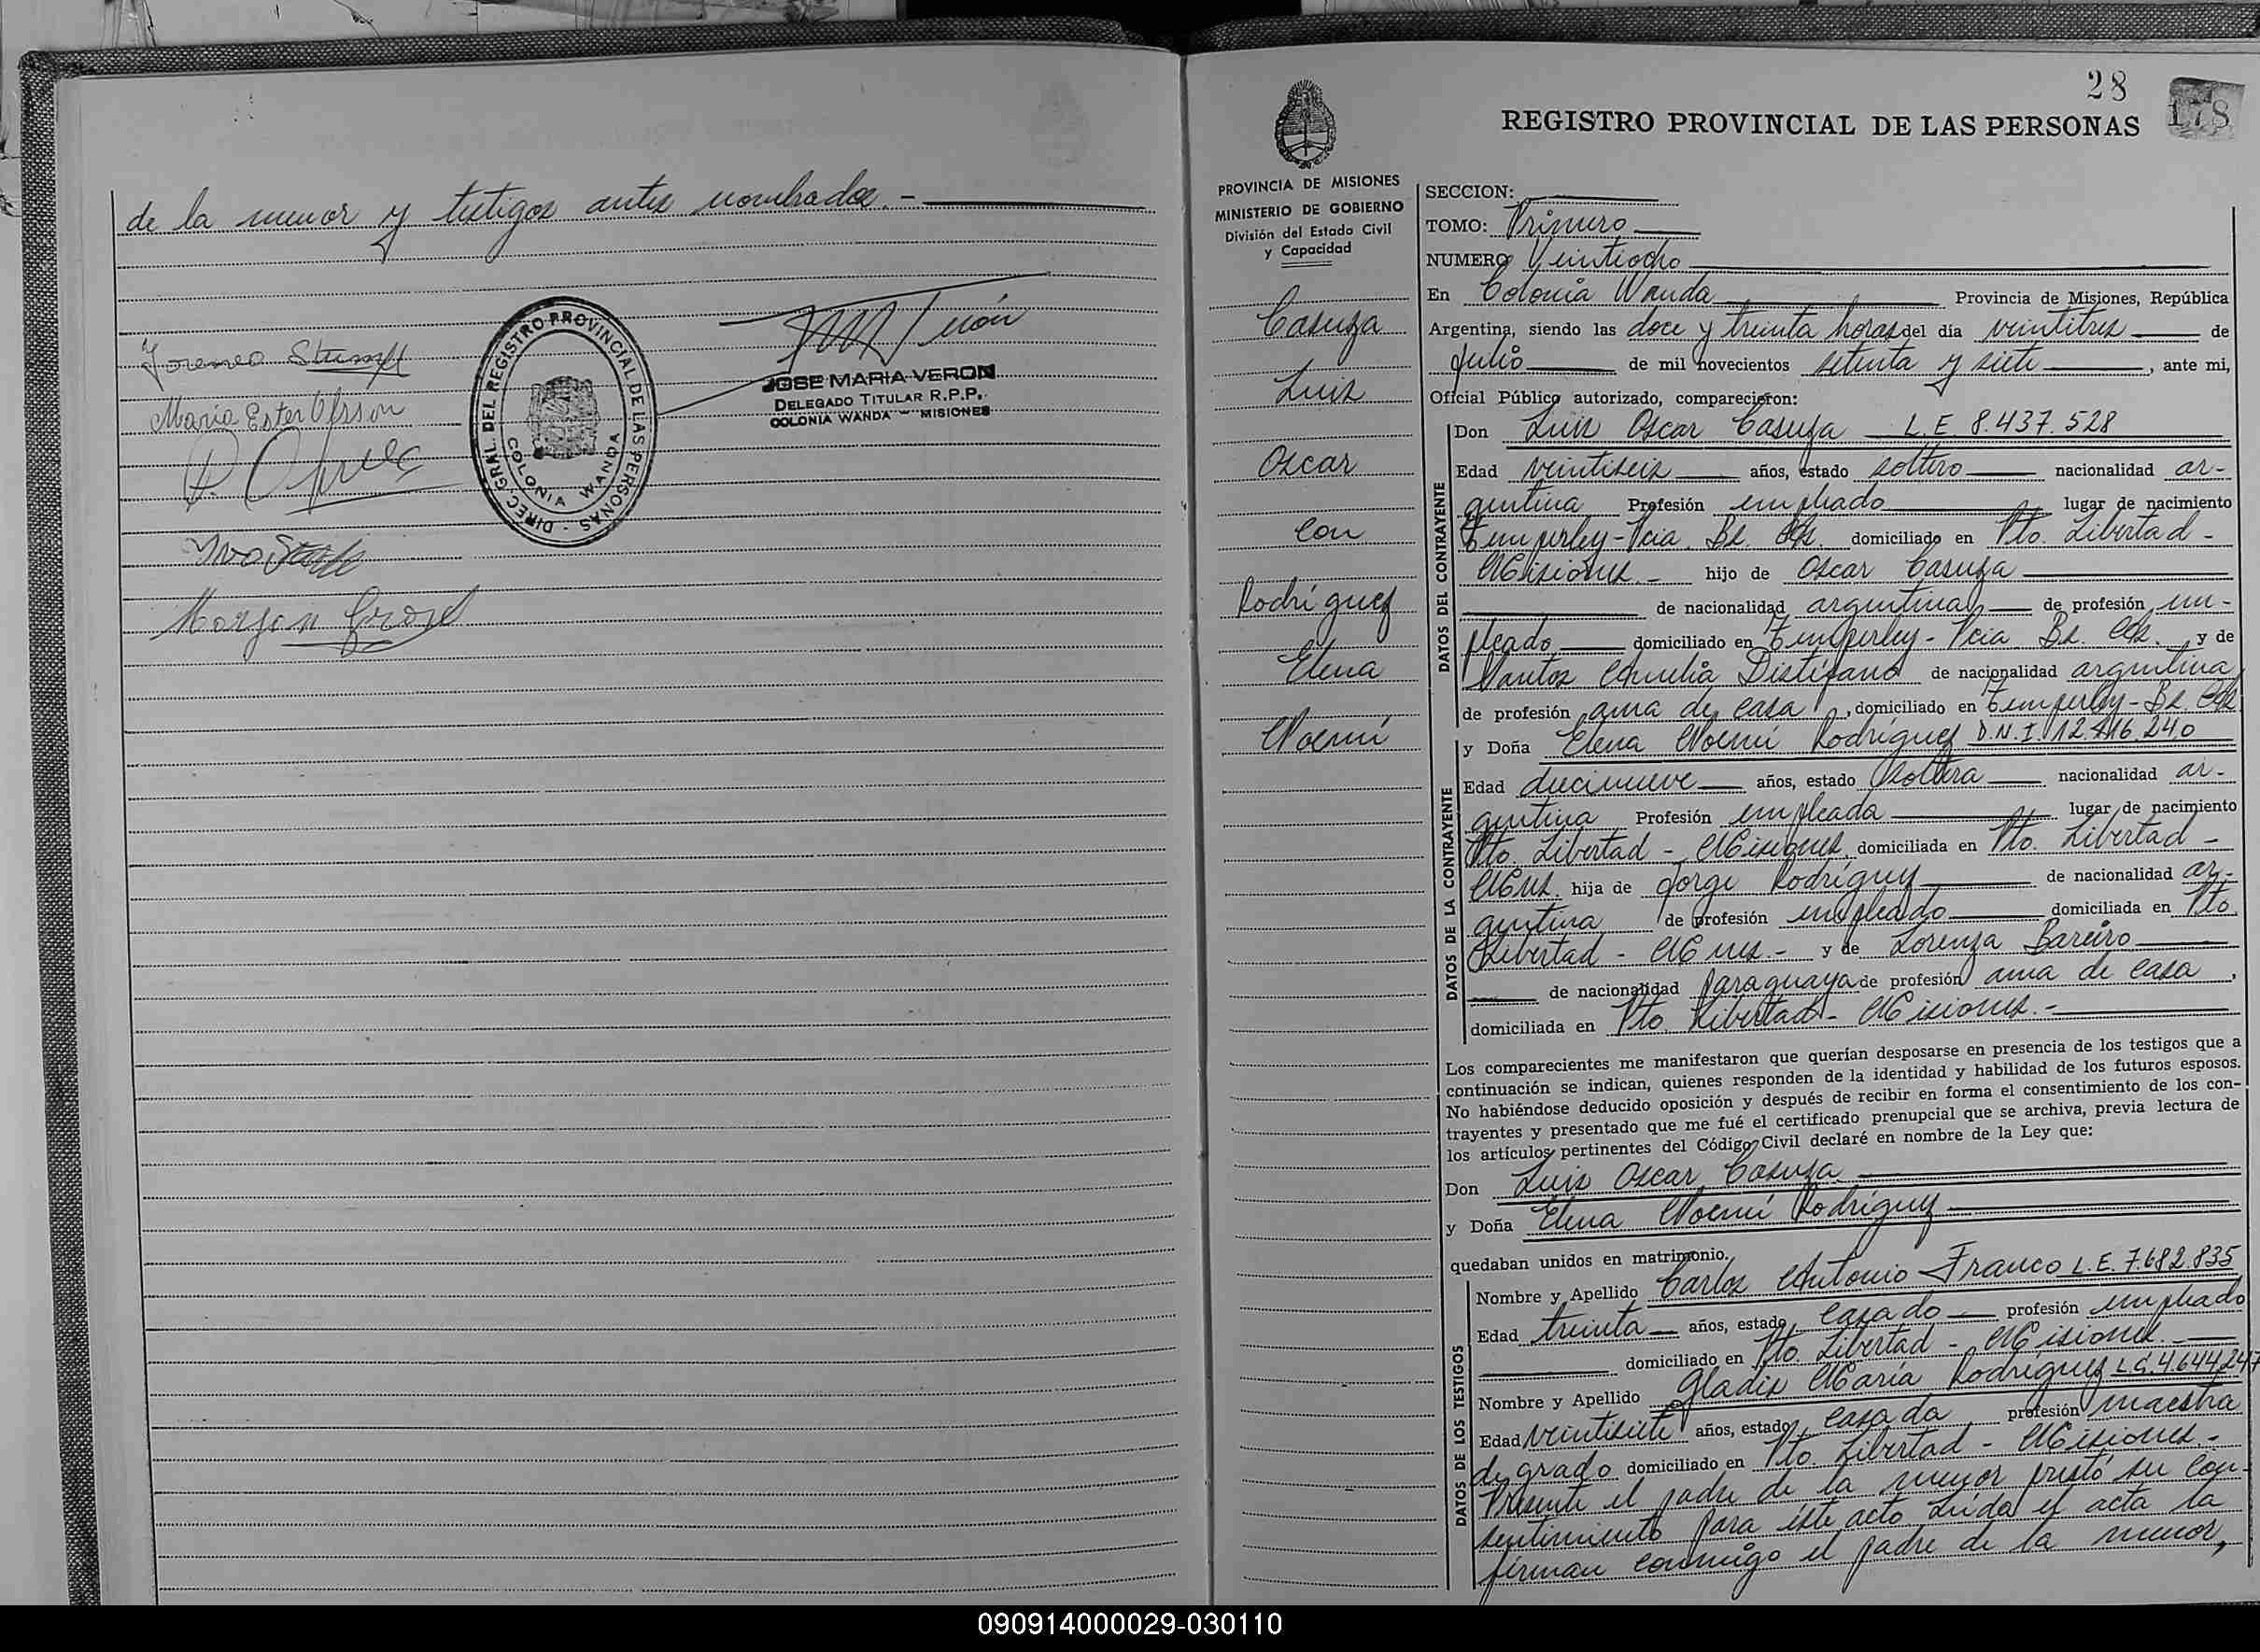 de la menor y testigos antes nombrados.-
Maria Ester Olsson
DIREC. GRAL. DEL REGISTRO PROVINCIAL DE LAS PERSONAS -
COLONIA WANDA
JOSE MARIA VERON
DELEGADO TITULAR R.P.P.
COLONIA WANDA - MISIONES
28
178
REGISTRO PROVINCIAL DE LAS PERSONAS
PROVINCIA DE MISIONES
MINISTERIO DE GOBIERNO
División del Estado Civil
y Capacidad
Casuza
Luis
Oscar
con
Rodríguez
Elena
Noemí
SECCION:
TOMO: Primero
NUMERO Veintiocho
En Colonia Wanda Provincia de Misiones, República
Argentina, siendo las doce y treinta horas del día veintitres de
Julio de mil novecientos setenta y siete, ante mi,
Oficial Público autorizado, comparecieron:
DATOS DEL CONTRAYENTE
Don Luis Oscar Casuza L.E. 8.437.528
Edad veintiseis años, estado soltero nacionalidad ar-
gentina Profesión empleado lugar de nacimiento
Temperley - Pcia. Bs. As. domiciliado en Pto. Libertad -
Misiones.- hijo de Oscar Casuza
de nacionalidad argentina de profesión em-
pleado domiciliado en Temperley - Pcia Bs. As. y de
Santos Amelia Distéfano de nacionalidad argentina
de profesión ama de casa, domiciliado en Temperley - Bs. As.
DATOS DE LA CONTRAYENTE
y Doña Elena Noemí Rodríguez D.N.I. 12.416.240
Edad diecinueve años, estado soltera nacionalidad ar-
gentina Profesión empleada lugar de nacimiento
Pto. Libertad - Misiones, domiciliada en Pto. Libertad -
Mnes. hija de Jorge Rodríguez de nacionalidad ar-
gentina de profesión empleado domiciliada en Pto.
Libertad - Mnes.- y de Lorenza Bareiro
de nacionalidad paraguaya de profesión ama de casa,
domiciliada en Pto. Libertad - Misiones.-
Los comparecientes me manifestaron que querían desposarse en presencia de los testigos que a
continuación se indican, quienes responden de la identidad y habilidad de los futuros esposos.
No habiéndose deducido oposición y después de recibir en forma el consentimiento de los con-
trayentes y presentado que me fué el certificado prenupcial que se archiva, previa lectura de
los artículos pertinentes del Código Civil declaré en nombre de la Ley que:
Don Luis Oscar Casuza
y Doña Elena Noemí Rodríguez
quedaban unidos en matrimonio.
DATOS DE LOS TESTIGOS
Nombre y Apellido Carlos Antonio Franco L.E. 7.682.835
Edad treinta años, estado casado profesión empleado
domiciliado en Pto. Libertad - Misiones.-
Nombre y Apellido Gladis María Rodríguez L.C. 4.644.247
Edad veintisiete años, estado casada profesión maestra
de grado domiciliado en Pto Libertad - Misiones.-
Presente el padre de la menor prestó su con-
sentimiento para éste acto Leída el acta la
firman conmigo el padre de la menor,
090914000029-030110